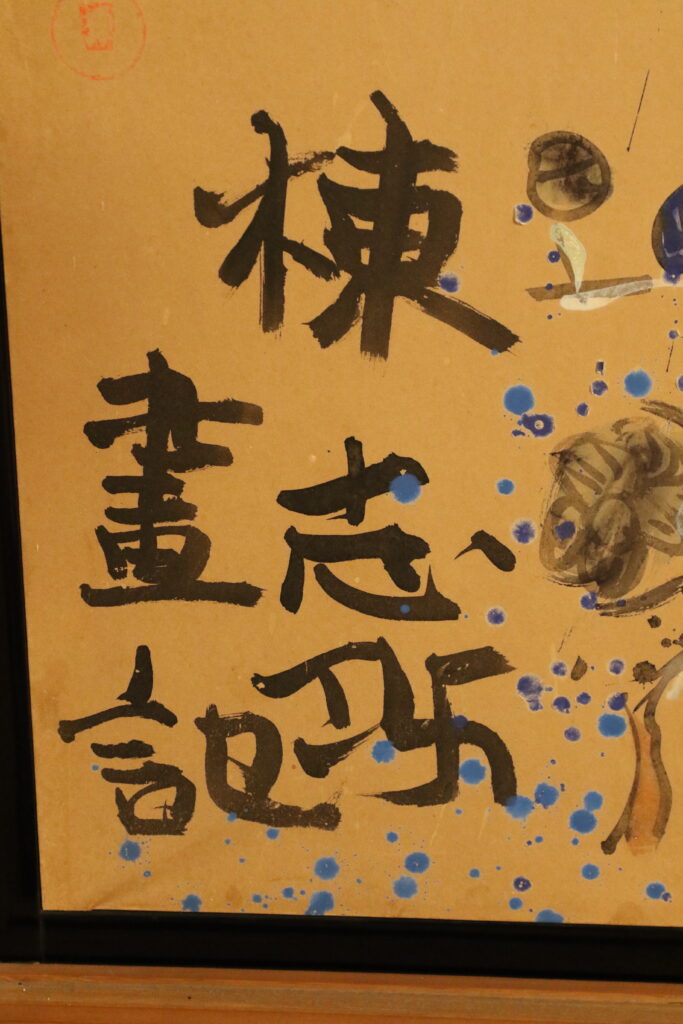 棟志功
畫記